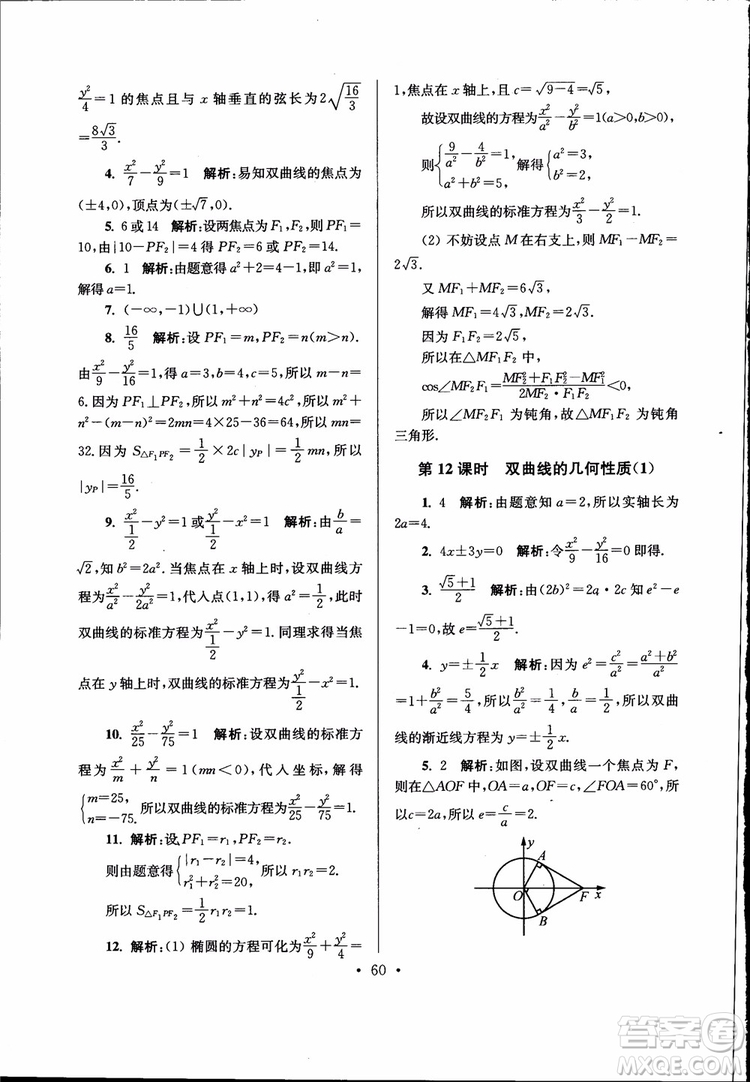 y²/4=1 的焦点且与 x 轴垂直的弦长为 2√(16/3)
=8√3/3.
4. x²/7-y²/9=1 解析:易知双曲线的焦点为
(±4,0),顶点为(±√7,0).
5. 6 或 14 解析:设两焦点为 F₁,F₂,则 PF₁=
10,由|10-PF₂|=4 得 PF₂=6 或 PF₂=14.
6. 1 解析:由题意得 a²+2=4-1,即 a²=1,
解得 a=1.
7. (-∞,-1)∪(1,+∞)
8. 16/5 解析:设 PF₁=m,PF₂=n(m>n).
由x²/9-y²/16=1,得 a=3,b=4,c=5,所以 m-n=
6.因为 PF₁⊥PF₂,所以 m²+n²=4c²,所以 m²+
n²-(m-n)²=2mn=4×25-36=64,所以 mn=
32.因为 S△F₁PF₂=1/2×2c|yP|=1/2mn,所以
|yP|=16/5.
9. x²/(1/2)-y²=1 或y²/(1/2)-x²=1 解析:由b/a=
√2,知 b²=2a².当焦点在 x 轴上时,设双曲线方
程为x²/a²-y²/2a²=1,代入点(1,1),得 a²=1/2,此时
双曲线的标准方程为x²/(1/2)-y²=1.同理求得当焦
点在 y 轴上时,双曲线的标准方程为y²/(1/2)-x²=1.
10. x²/25-y²/75=1 解析:设双曲线的标准方
程为x²/m+y²/n=1(mn<0),代入坐标,解得
{m=25, n=-75. 所以双曲线的标准方程为x²/25-y²/75=1.
11. 解析:设 PF₁=r₁,PF₂=r₂.
则由题意得{|r₁-r₂|=4, r₁²+r₂²=20, 所以 r₁r₂=2.
所以 S△F₁PF₂=1/2r₁r₂=1.
12. 解析:(1) 椭圆的方程可化为x²/9+y²/4=
1,焦点在 x 轴上,且 c=√(9-4)=√5,
故设双曲线的方程为x²/a²-y²/b²=1(a>0,b>0),
则{9/a²-4/b²=1, a²+b²=5, 解得{a²=3, b²=2,
所以双曲线的标准方程为x²/3-y²/2=1.
(2) 不妨设点 M 在右支上,则有 MF₁-MF₂=
2√3.
又 MF₁+MF₂=6√3,
解得 MF₁=4√3,MF₂=2√3.
因为 F₁F₂=2√5,
所以在△MF₁F₂ 中,
cos∠MF₂F₁=(MF₂²+F₁F₂²-MF₁²)/(2MF₂·F₁F₂)<0,
所以∠MF₂F₁ 为钝角,故△MF₁F₂ 为钝角
三角形.
第 12 课时 双曲线的几何性质(1)
1. 4 解析:由题意知 a=2,所以实轴长为
2a=4.
2. 4x±3y=0 解析:令x²/9-y²/16=0 即得.
3. (√5+1)/2 解析:由(2b)²=2a·2c 知 e²-e
-1=0.故 e=(√5+1)/2.
4. y=±1/2x 解析:因为 e²=c²/a²=(a²+b²)/a²
=1+b²/a²=5/4,所以b²/a²=1/4,b/a=1/2,所以双曲
线的渐近线方程为 y=±1/2x.
5. 2 解析:如图,设双曲线一个焦点为 F,
则在△AOF 中,OA=a,OF=c,∠FOA=60°,所
以 c=2a,所以 e=c/a=2.
y
A
O
F
x
B
· 60 ·
答案圈